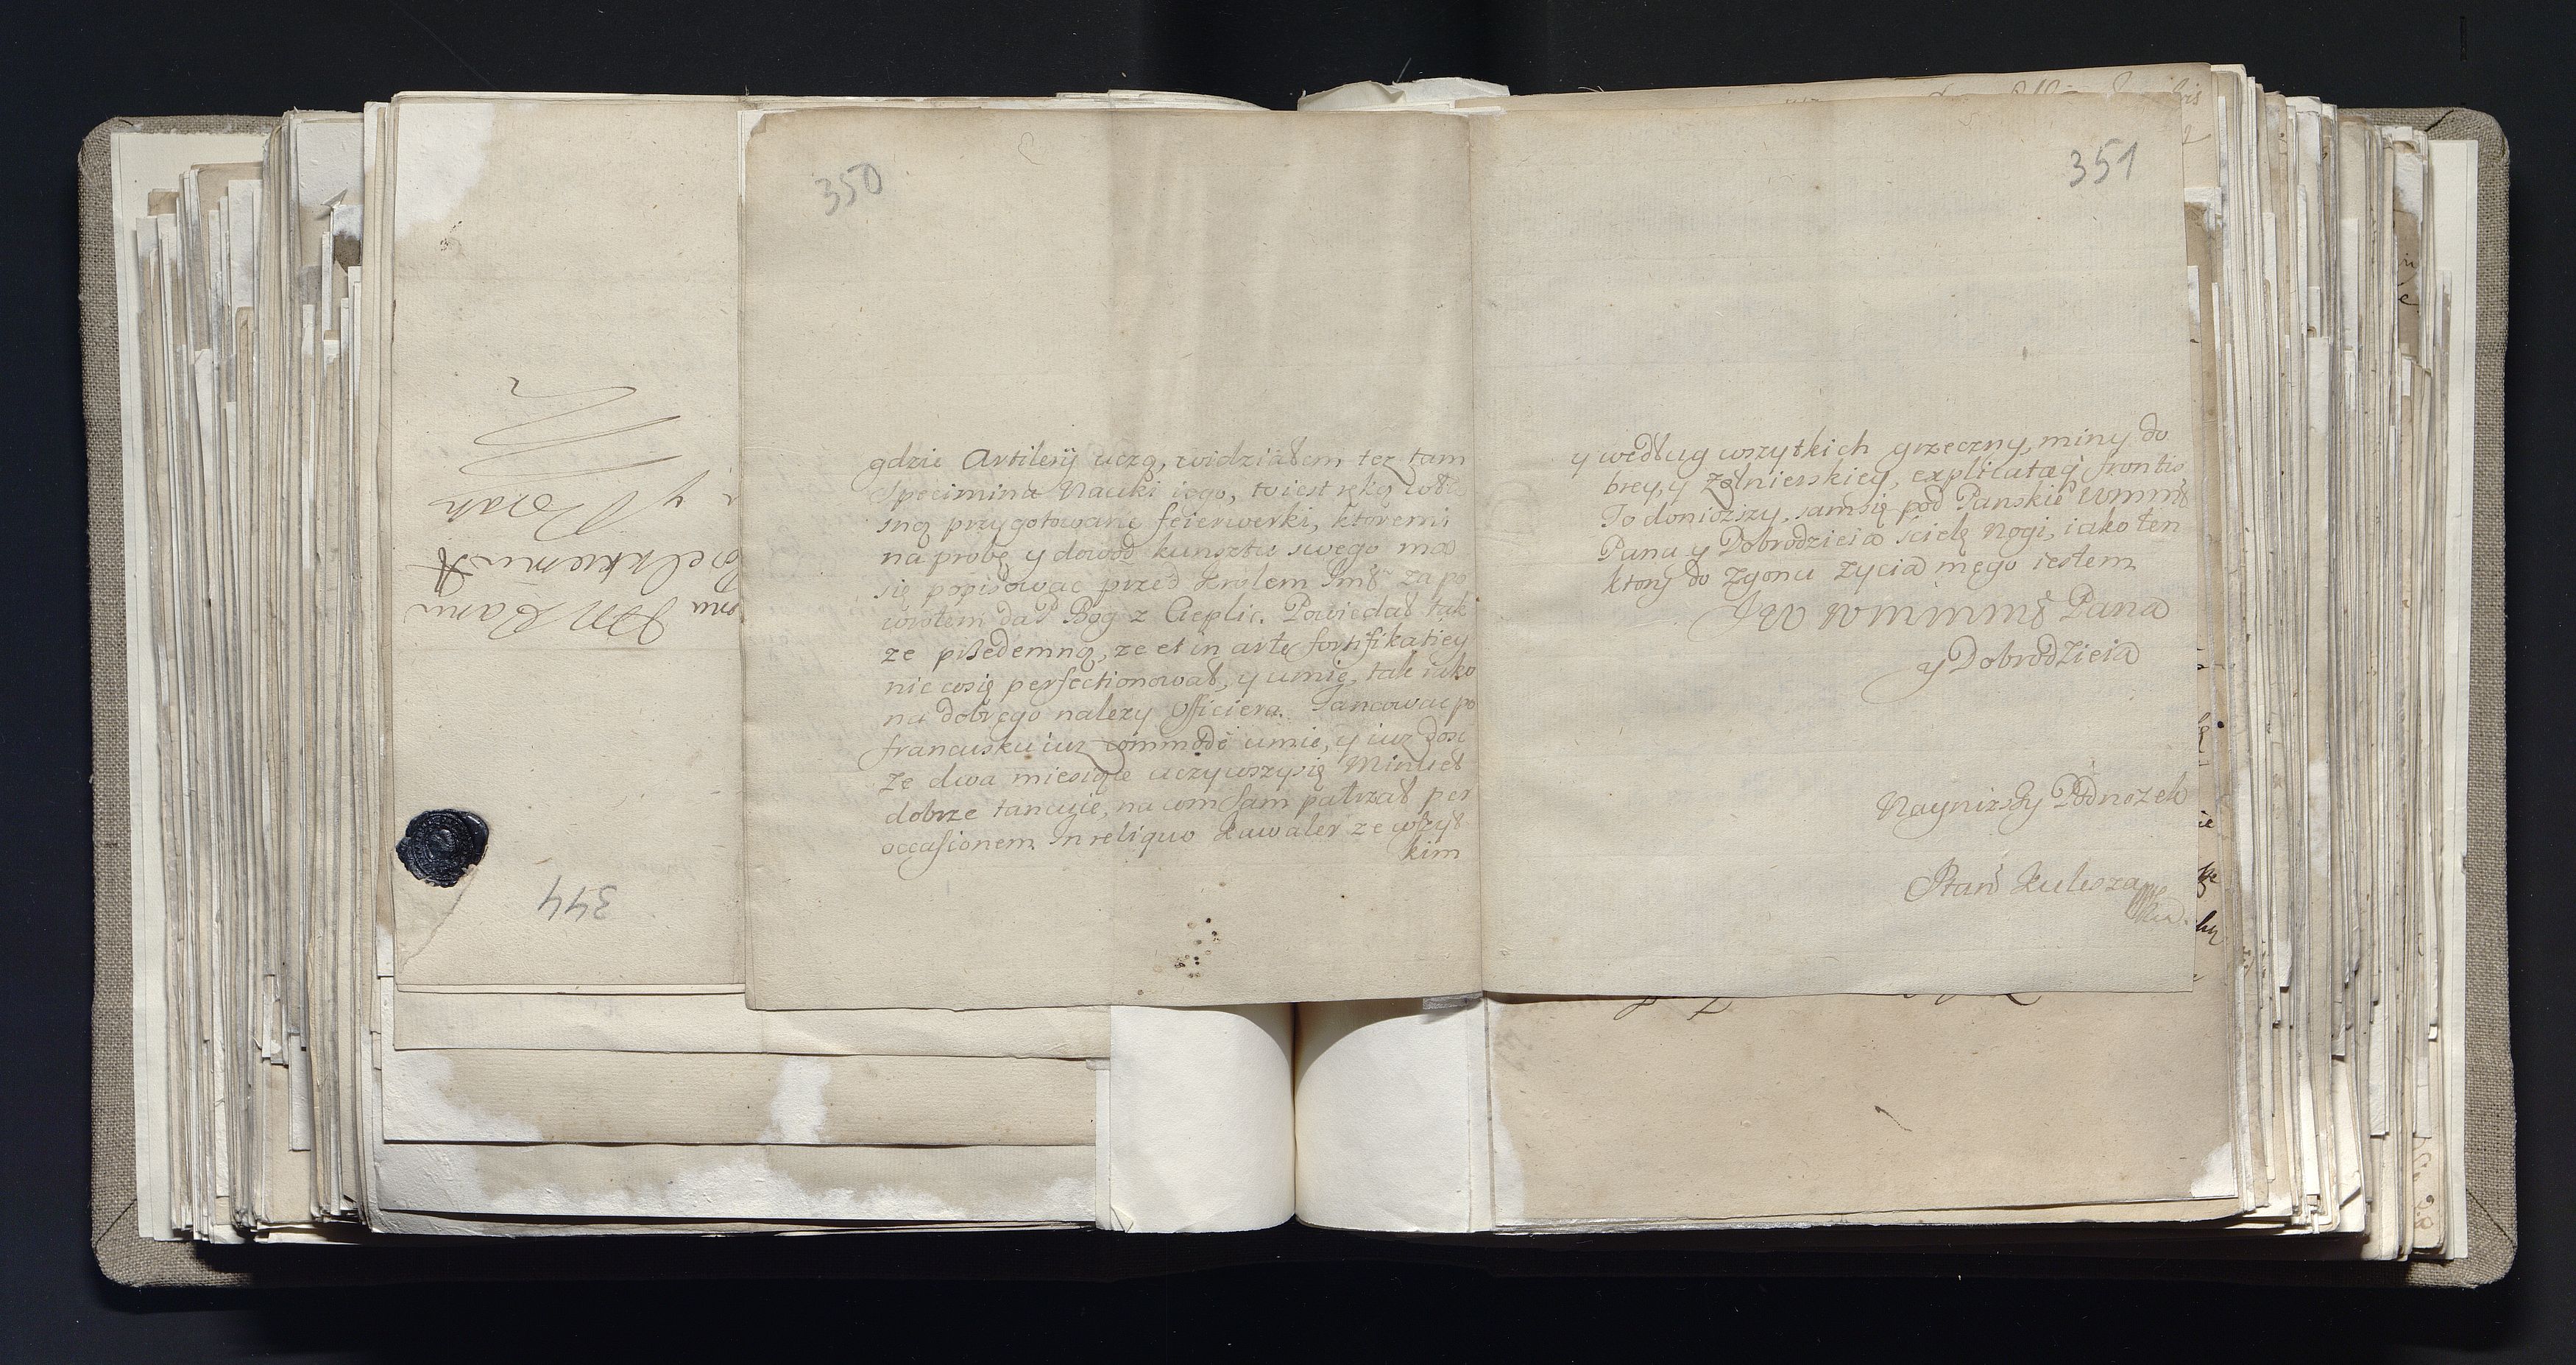 350
gdzie Artilerÿ uczą, widziałem tez tam
Specimina Nauki iego, to iest ręką wła
sną przygotowane feierwerki, ktoremi
na probę y dowod kunsztu swego ma
się popisować przed Krolem Jmć za po
wrotem da P Bog z Cieplic. Powiedał tak
ze przedemną, ze et in arte fortifikatiey
nie cosię perfectionował, y umie, tak iako
na dobrego nalezy Officiera. Tancować po
francusku iuz commode umie, y iuz dosc
ze dwa miesiące uczywszysię Minuet
dobrze tancuie, na com sam patrzał per
occasionem. In reliquo Kawaler ze wszyt
kim
351
y według wszytkich grzeczny, miny do
brey, y zołnierskiey, explicatæq frontis
To doniozszy, sam się pod Panskie WMMM
Pana y Dobrodzieia ścielę Nogi, iako ten
ktory do Zgonu zycia mego iestem
JW WMMMM Pana
y Dobrodzieia
Naynizszy Podnozek
Stan Kulesza
344
JM Panu